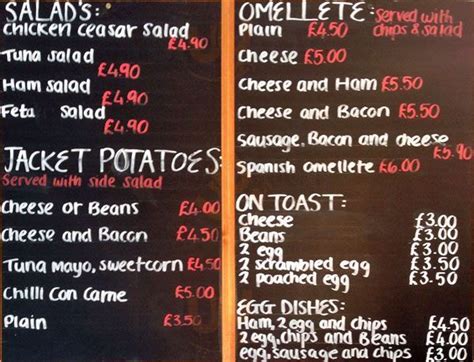 SALAD'S:
Chicken Ceasar Salad
£4.90
Tuna salad
£4.90
Ham salad
£4.90
Feta salad
£4.90
JACKET POTATOES:
Served with side salad
Cheese or Beans £4.00
Cheese and Bacon £4.50
Tuna Mayo, sweetcorn £4.50
Chilli Con Carne £5.00
Plain £3.50
OMELLETE: Served with chips & salad
Plain £4.50
Cheese £5.00
Cheese and Ham £5.50
Cheese and Bacon £5.50
Sausage, Bacon and cheese
£5.90
Spanish omellete £6.00
ON TOAST:
Cheese £3.00
Beans £3.00
2 egg £3.00
2 scrambled egg £3.50
2 poached egg £3.50
EGG DISHES:
Ham, 2 egg and chips £4.50
2 egg, chips and Beans £4.00
egg, sausage and chips £3.00